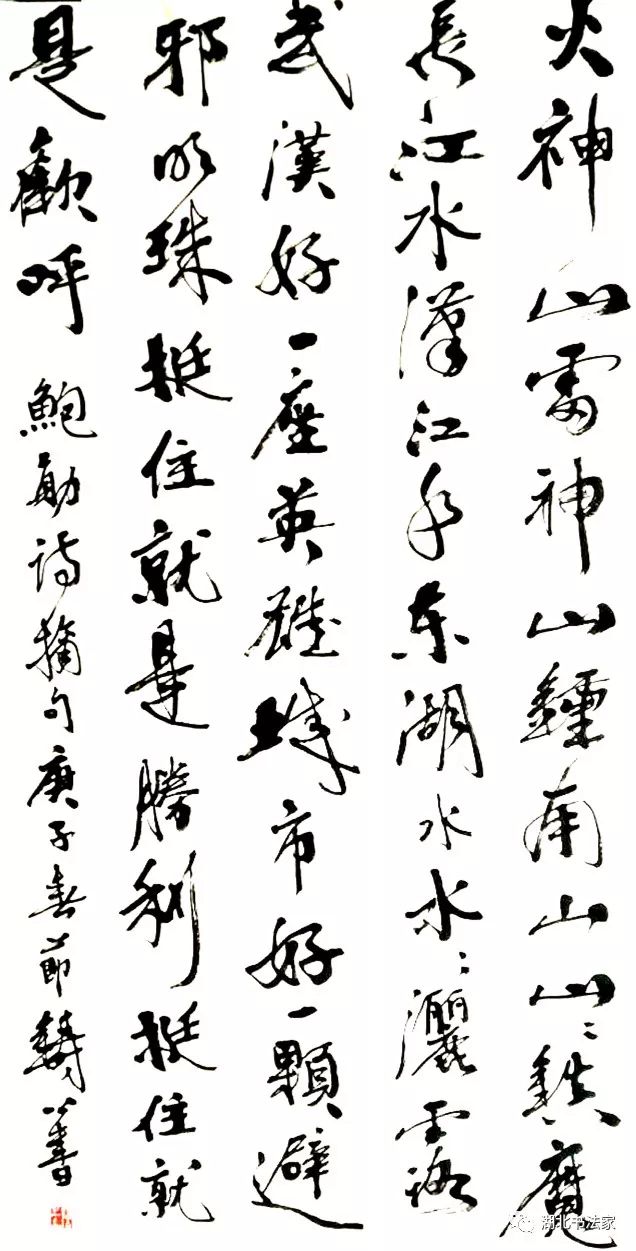 火神山雷神山钟南山山々镇魔
长江水漢江水东湖水水々灑雨露
武漢好一座英雄城市好一顆避
邪明珠挺住就是勝利挺住就
是歡呼 鮑勛诗摘句庚子春節 書
湖北书法家